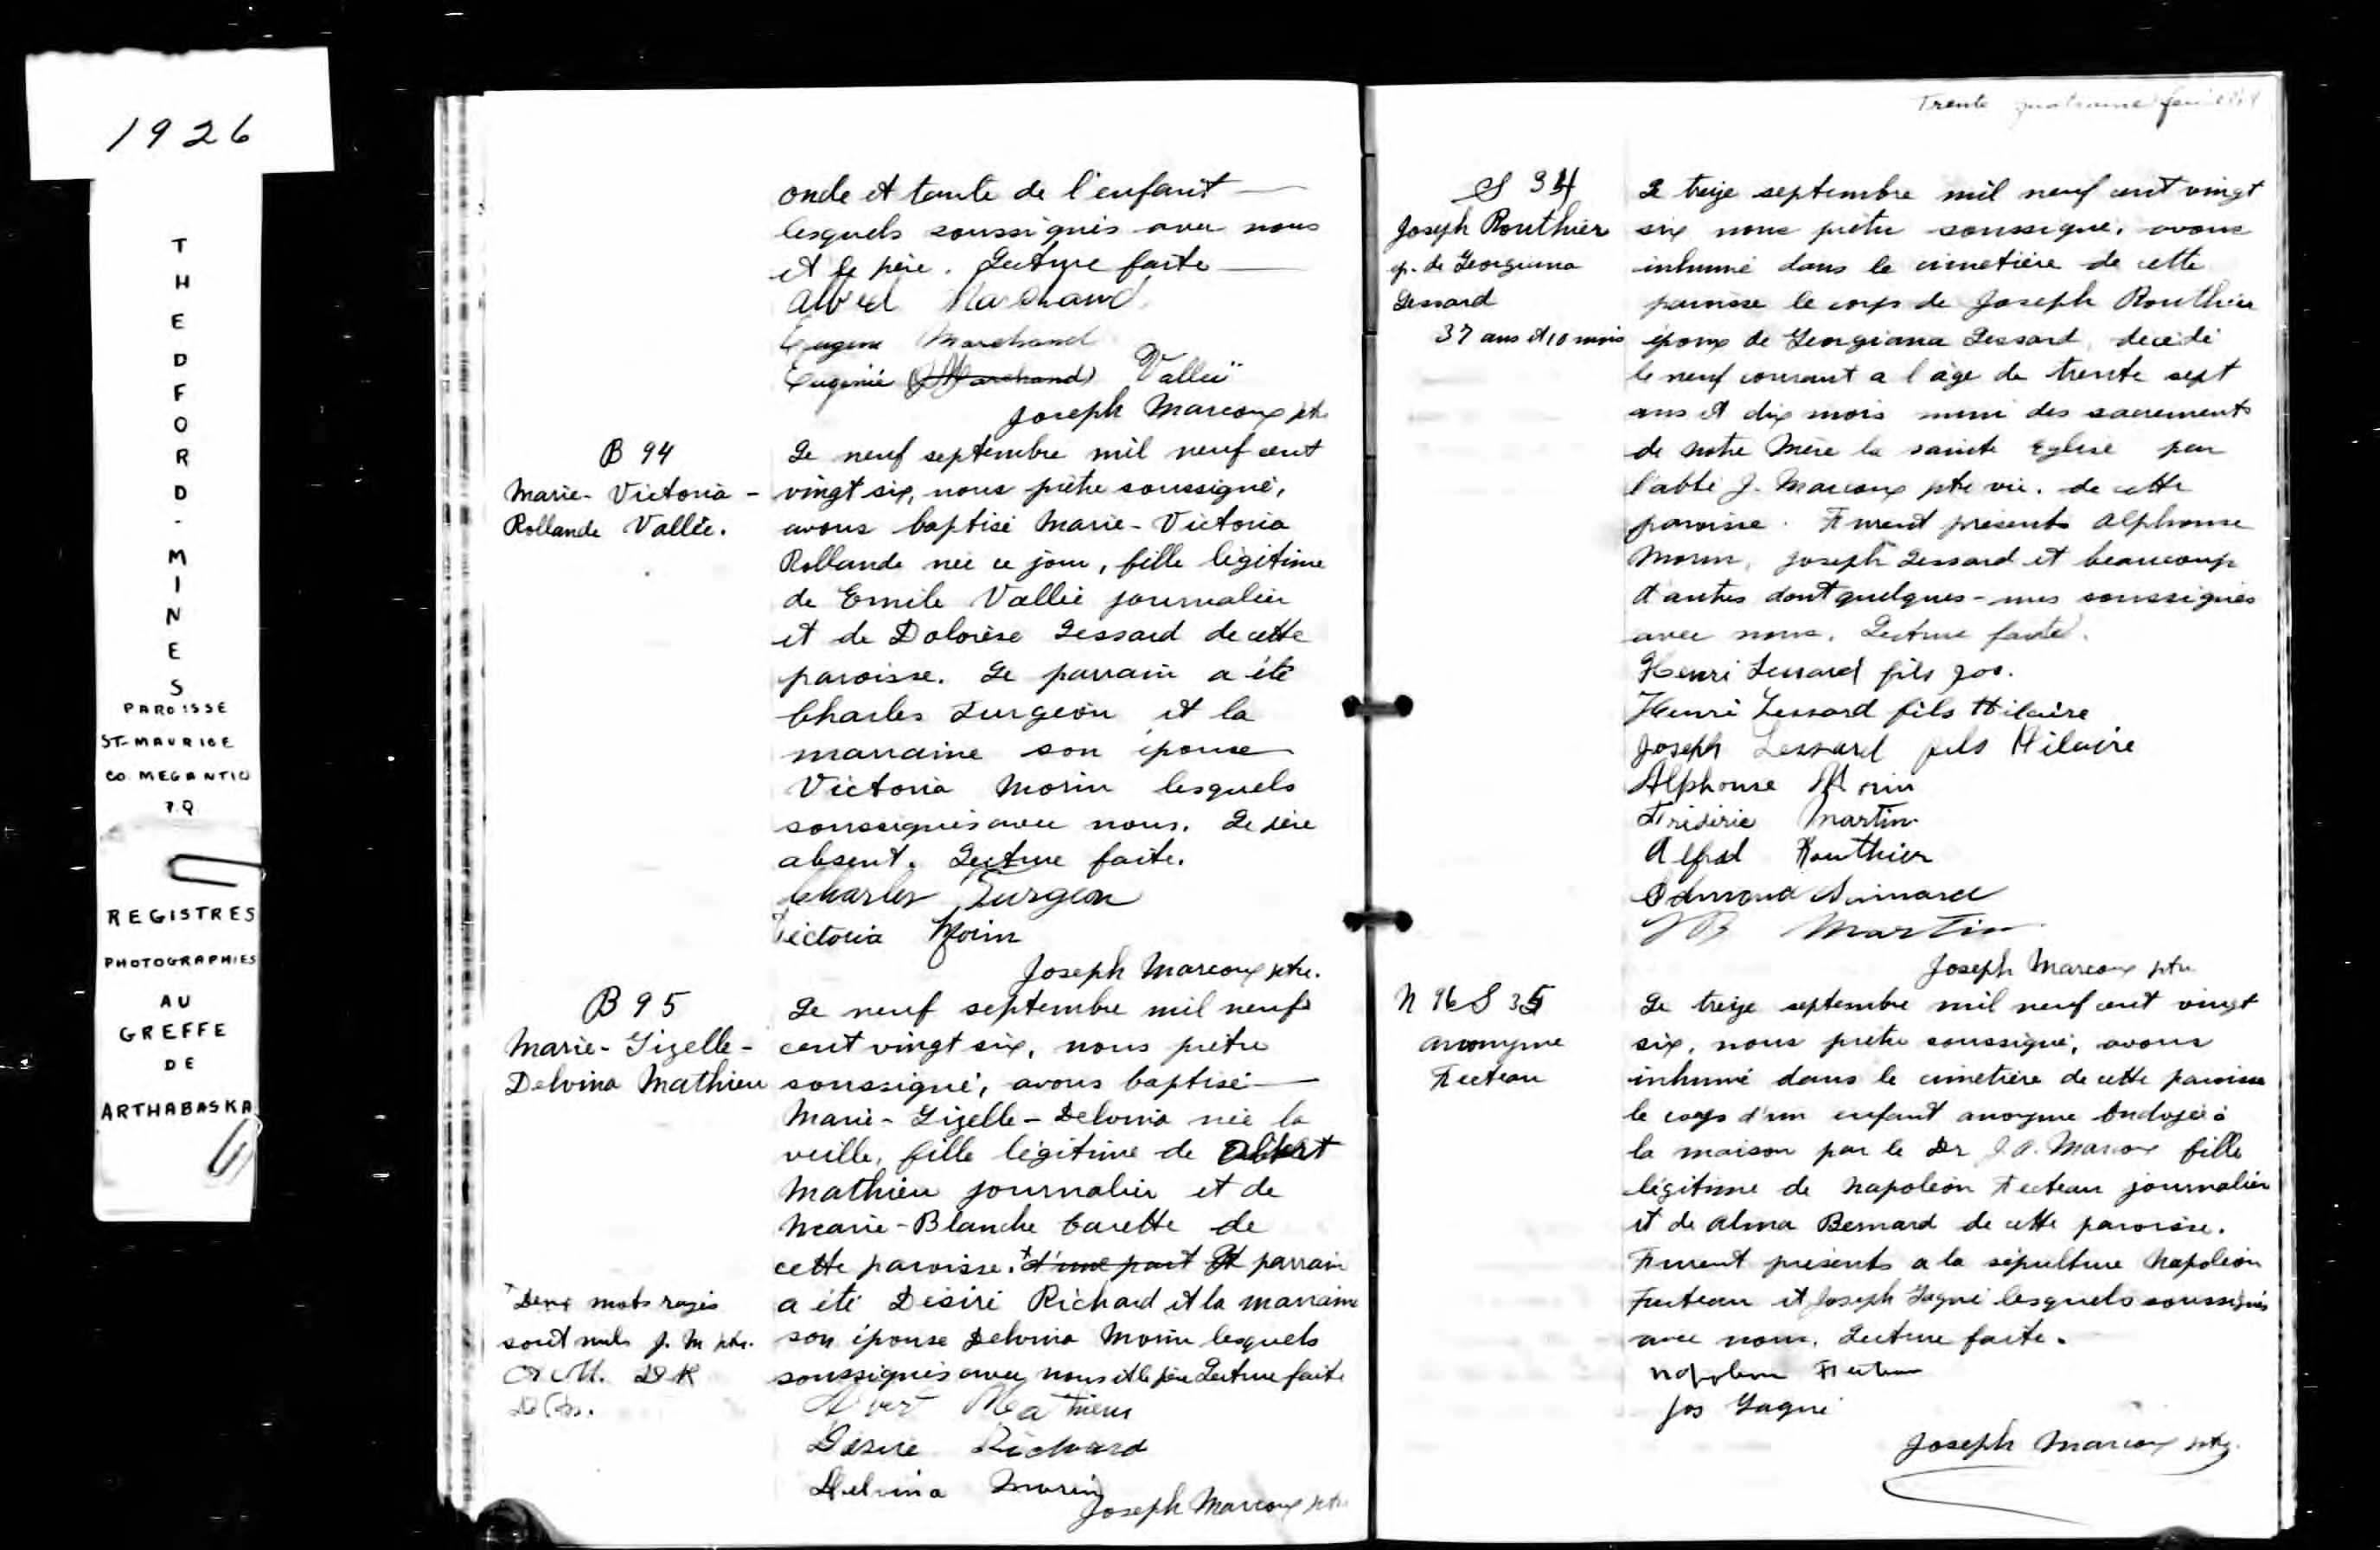 1926
THEDFORD-MINES
PAROISSE
ST-MAURICE
CO. MEGANTIC
P.Q
REGISTRES
PHOTOGRAPHIES
AU
GREFFE
DE
ARTHABASKA
oncle et tante de l'enfant
lesquels soussignés avec nous
et le père. Lecture faite
Marchand
Eugène Marchand
Eugénie (Marchand) Vallée
Joseph Marcoux ptre
B 94
Marie-Victoria-
Rollande Vallée.
Le neuf septembre mil neuf cent
vingt six, nous prêtre soussigné,
avons baptisé Marie-Victoria
Rollande née ce jour, fille légitime
de Emile Vallée journalier
et de Dolorèse Lessard de cette
paroisse. Le parrain a été
Charles Turgeon et la
marraine son épouse
Victoria Morin lesquels
soussignés avec nous. Le père
absent. Lecture faite.
Charles Turgeon
Victoria Morin
Joseph Marcoux ptre.
B 95
Marie-Gizelle-
Delvina Mathieu
Le neuf septembre mil neuf
cent vingt six, nous prêtre
soussigné, avons baptisé
Marie-Gizelle-Delvina née la
veille, fille légitime de Albert
Mathieu journalier et de
Marie-Blanche Carette de
cette paroisse. + d'une part Le parrain
+ Deux mots rayés
sont nuls J. M ptre.
A M. D R
D M.
a été Désiré Richard et la marraine
son épouse Delvina Morin lesquels
soussignés avec nous et le père Lecture faite
Albert Mathieu
Désiré Richard
Delvina Morin
Joseph Marcoux ptre
Trente quatrième feuillet
S 34
Joseph Routhier
ép. de Georgiana
Lessard
37 ans et 10 mois
Le treize septembre mil neuf cent vingt
six nous prêtre soussigné, avons
inhumé dans le cimetière de cette
paroisse le corps de Joseph Routhier
époux de Georgiana Lessard, décédé
le neuf courant a l'âge de trente sept
ans et dix mois muni des sacrements
de notre Mère la sainte Eglise par
l'abbé J. Marcoux ptre vic. de cette
paroisse. Furent présents Alphonse
Morin, Joseph Lessard et beaucoup
d'autres dont quelques-uns soussignés
avec nous. Lecture faite.
Henri Lessard fils Jos.
Henri Lessard fils Hilaire
Joseph Lessard fils Hilaire
Alphonse Morin
Fridéric Martin
Alfred Routhier
Edmond
Martin
Joseph Marcoux ptre
N 96 S 35
anonyme
Fecteau
Le treize septembre mil neuf cent vingt
six, nous prêtre soussigné, avons
inhumé dans le cimetière de cette paroisse
le corps d'un enfant anonyme Ondoyée à
la maison par le Dr J. A. Marcoux fille
légitime de Napoléon Fecteau journalier
et de Alma Bernard de cette paroisse.
Furent présents a la sépulture Napoléon
Fecteau et Joseph Gagné lesquels soussignés
avec nous. Lecture faite.
Napoléon Fecteau
Jos Gagné
Joseph Marcoux ptre.